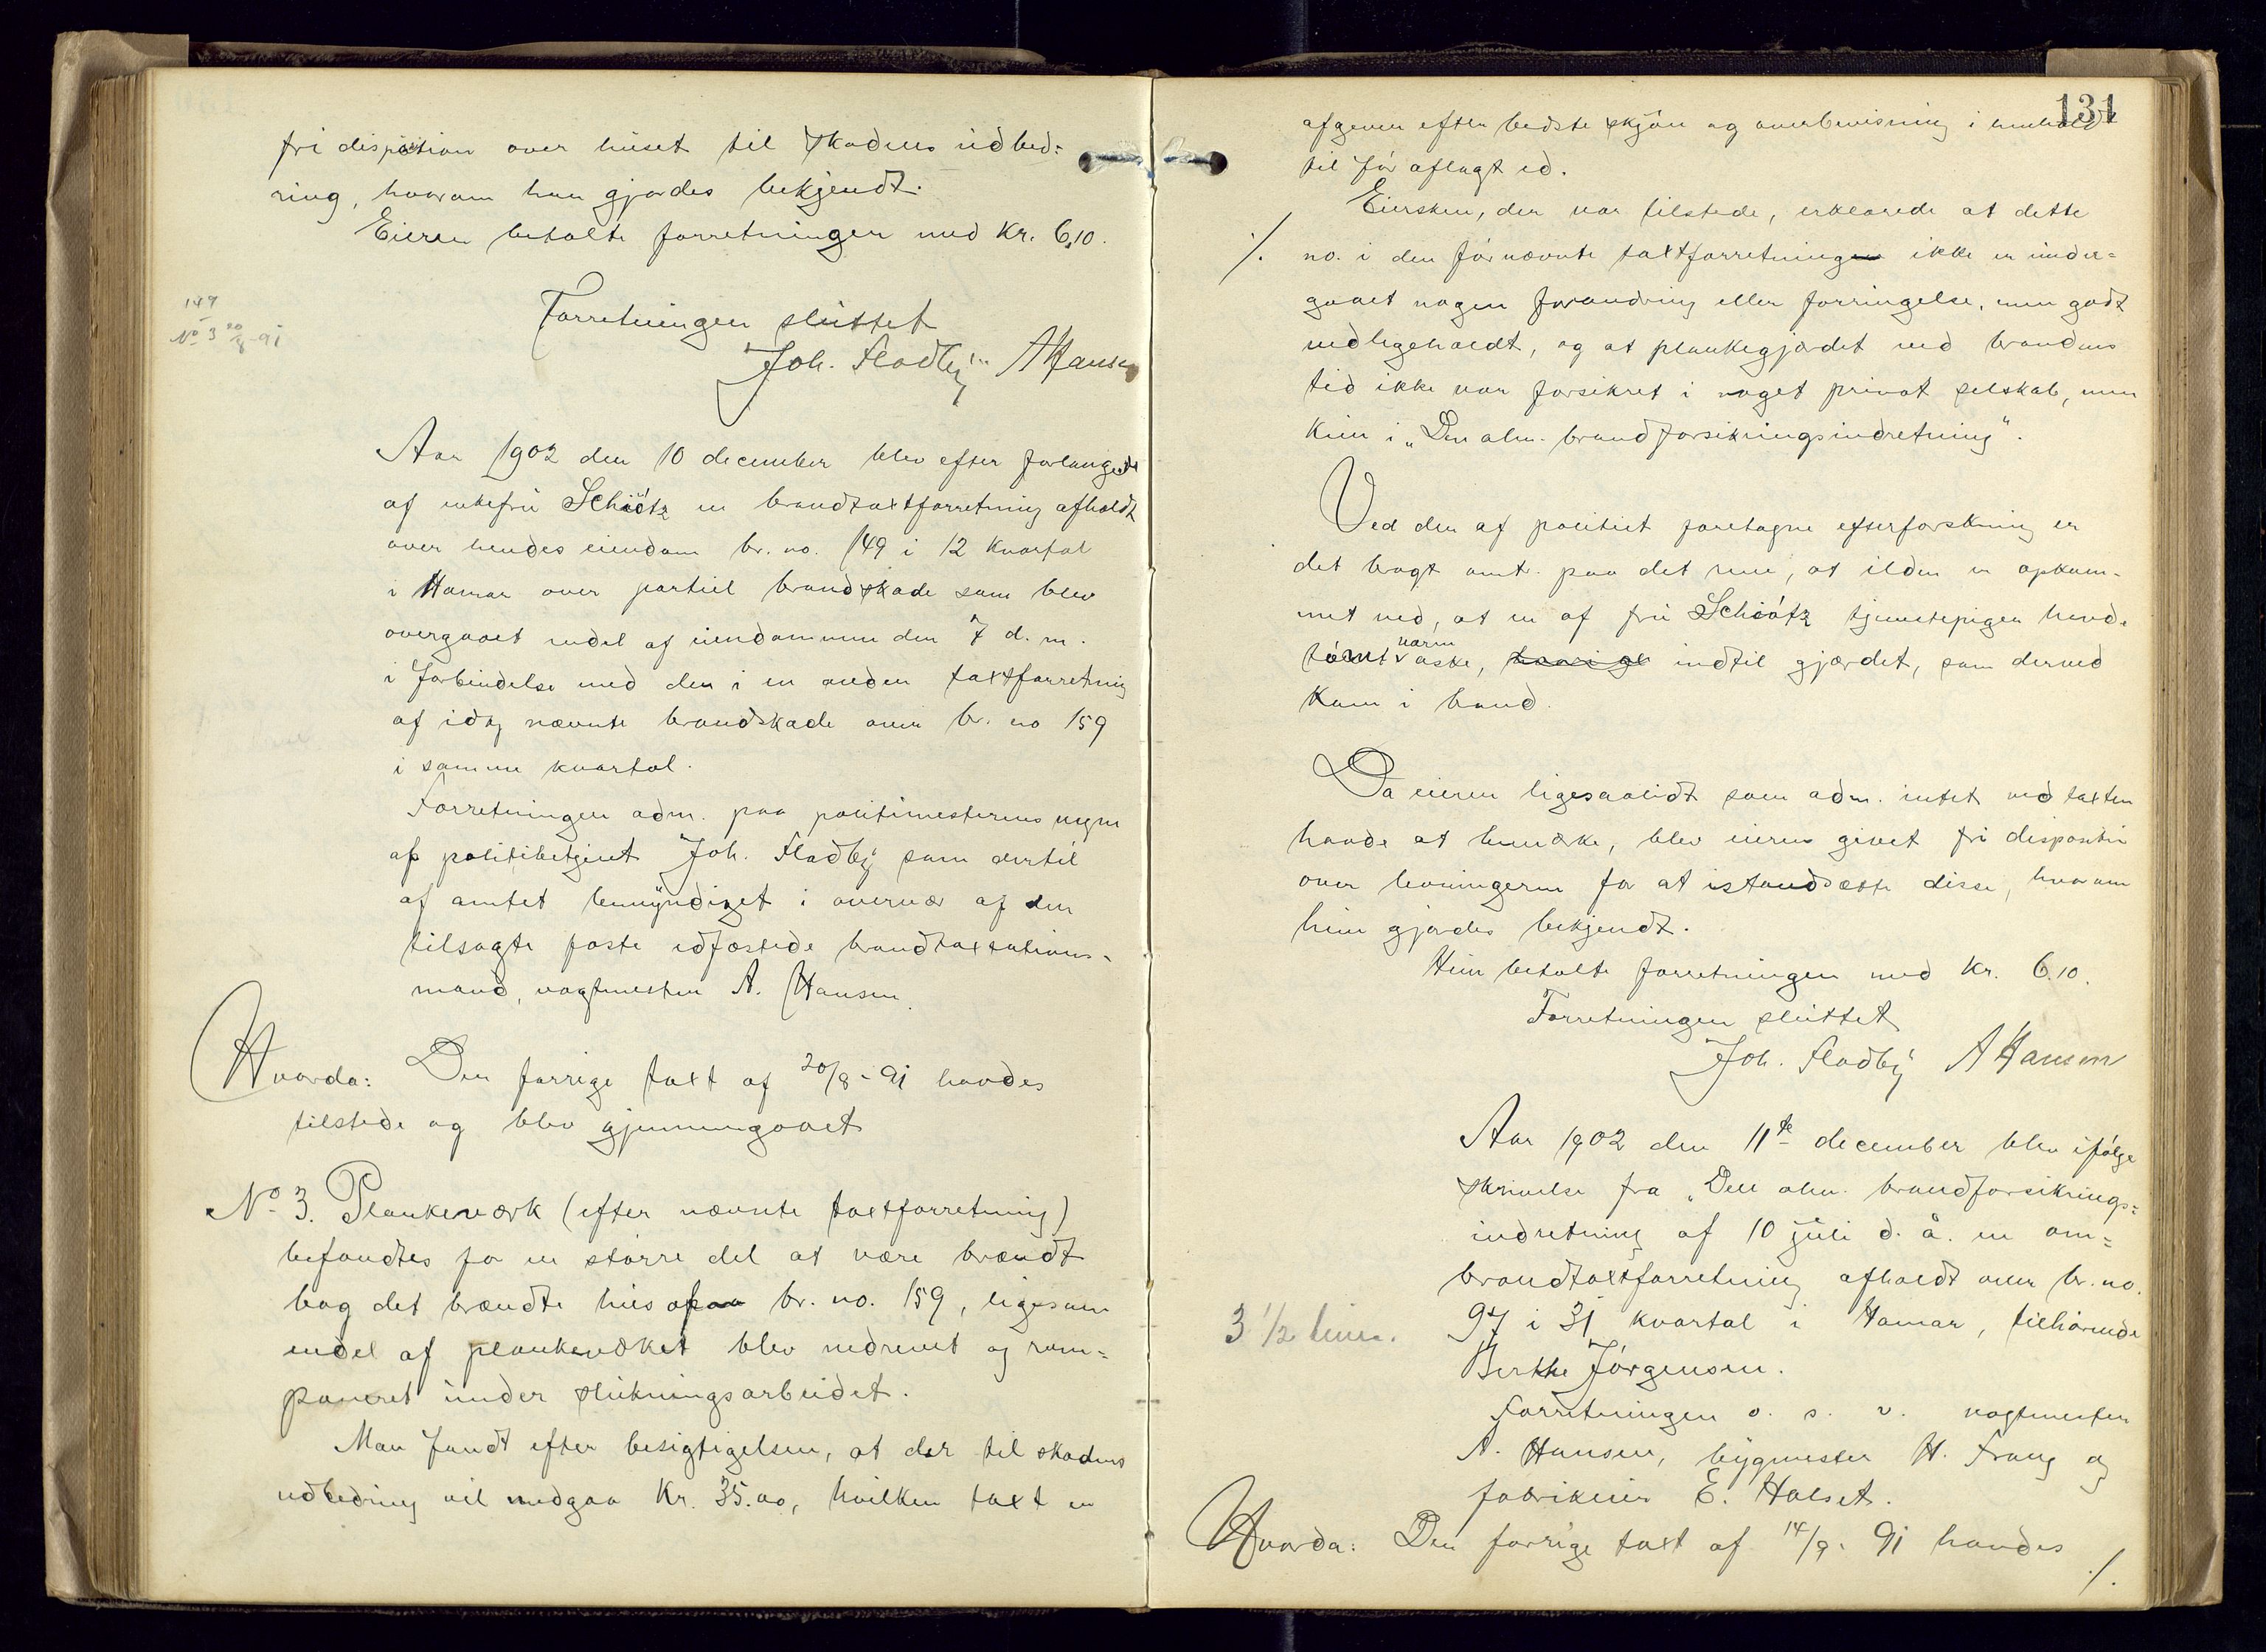 fri disposition over huset til skadens udbed=
ring, hvorom han gjordes bekjendt.
Eieren betalte forretningen med Kr. 6,10.
Forretningen sluttet
Joh. Fladby AHansen
149
No 3 20/8-91
Aar 1902 den 10 december blev efter forlangende
af enkefru Schiötz en brandtaxtforretning afholdt
over hendes eiendom br. no. 149 i 12 kvartal
i Hamar over partiel brandskade som blev
overgaaet endel af eiendommen den 7 d. m.
i forbindelse med den i en anden taxtforretning
af idag nævnte brandskade over br. no 159
i samme kvartal.
Forretningen adm. paa politimesterens vegne
af politibetjent Joh. Fladby som dertil
af amtet bemyndiget i overvær af den
tilsagte faste edfæstede brandtaxations-
mand, vagtmester A. Hansen.
Hvorda: Den forrige taxt af 20/8-91 havdes
tilstede og blev gjennemgaaet
No 3. Plankeværk (efter nævnte taxtforretning)
befandtes for en större del at være brændt
bag det brændte hus paa br. no. 159, ligesom
endel af plankeværket blev nedrevet og ram=
poneret under slukningsarbeidet.
Man fandt efter besigtigelsen, at der til skadens
udbedring vil medgaa Kr. 35.00, hvilken taxt er
131
afgiven efter bedste skjön og overbevisning i henhold
til för aflagt ed.
Eiersken, der var tilstede, erklærede at dette
./. no. i den förnævnte taxtforretning ikke er under=
gaaet nogen forandring eller forringelse, men godt
vedligeholdt, og at plankegjærdet ved brandens
tid ikke var forsikret i noget privat selskab, men
kun i „Den alm. brandforsikringsindretning".
Ved den af politiet foretagne efterforskning er
det bragt omtr. paa det rene, at ilden er opkom-
met ved, at en af fru Schiötz tjenestepiger havde
tömt varm aske, indtil gjærdet, som derved
kom i brand.
Da eieren ligesaalidt som adm. intet ved taxten
havde at bemærke, blev eieren givet fri disposition
over levningerne for at istandsætte disse, hvorom
hun gjordes bekjendt.
Hun betalte forretningen med Kr. 6.10.
Forretningen sluttet
Joh. Fladby AHansen
Aar 1902 den 11te december blev ifölge
skrivelse fra „Den alm. brandforsikrings=
indretning af 10 juli d. å. en om=
brandtaxtforretning afholdt over br. no.
3 1/2 97 i 31 kvartal i Hamar, tilhörende
Berthe Jörgensen.
Forretningen o. s. v. vagtmester
A. Hansen, bygmester H. Frang og
fabrikeier E. Halset.
Hvorda: Den forrige taxt af 14/9-91 havdes
./.